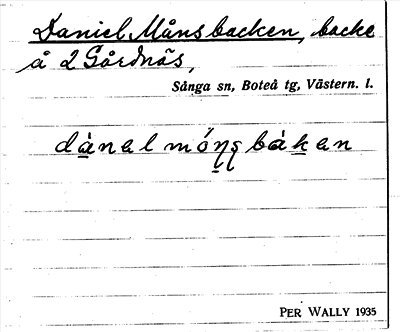 Daniel Månsbacken, backe
å 2 Gårdnäs,
Sånga sn, Boteå tg, Västern. l.
dànel móŋsbàkan
PER WALLY 1935